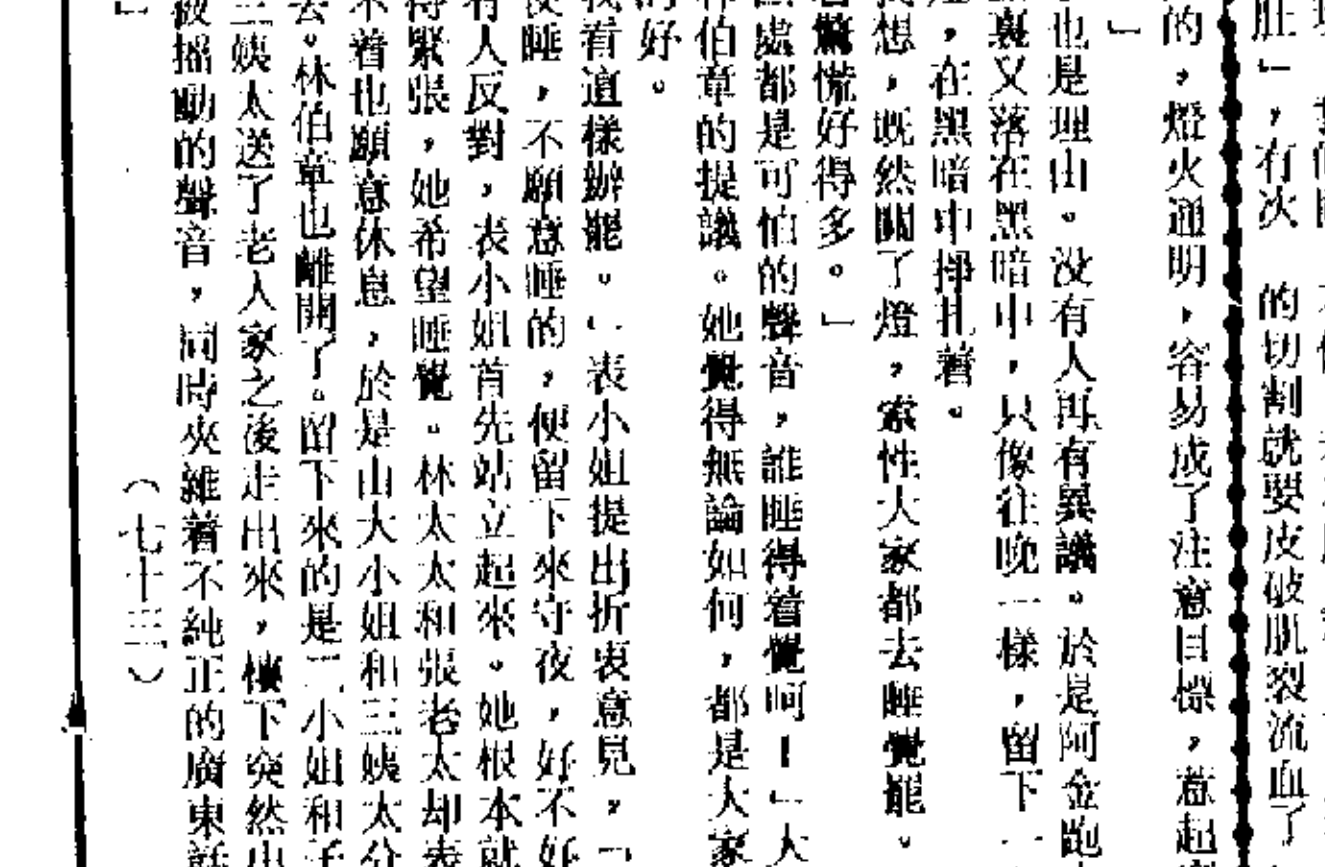 肚」，有次　的切割就要皮破肌裂流血了
的，燈火通明，容易成了注意目標，惹起
」
也是理由。没有人再有異議。於是阿金跑
裏又落在黑暗中，只像往晚一樣，留下一
，在黑暗中掙扎着。
想，既然關了燈，索性大家都去睡覺罷。
驚慌好得多。」
處都是可怕的聲音，誰睡得着覺呵！」大
伯章的提議。她覺得無論如何，都是大家
的好。
我看這樣辦罷。」表小姐提出折衷意見，「
夜睡，不願意睡的，便留下來守夜，好不好
有人反對，表小姐首先站立起來。她根本就
得緊張，她希望睡覺。林太太和張老太却表
不着也願意休息，於是由大小姐和三姨太分
去。林伯章也離開了。留下來的是二小姐和子
三姨太送了老人家之後走出來，樓下突然出
被搖動的聲音，同時夾雜着不純正的廣東話
」
（七十三）